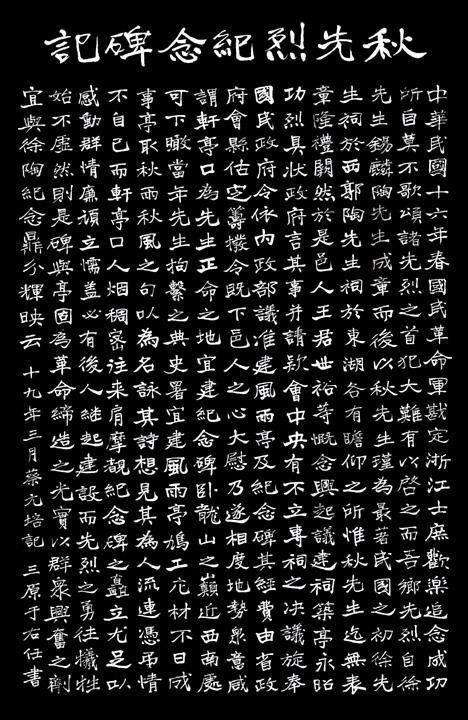 秋先烈紀念碑記
中華民國十六年春國民革命軍戡定浙江士庶歡樂追念成功
所自莫不歌頌諸先烈之首犯大難有以啓之而吾鄉先烈自徐
先生錫麟陶先生成章而後以秋先生瑾為最著民國之初徐先
生祠於西郭陶先生祠於東湖各有瞻仰之所惟秋先生迄無表
章隆禮闕然於是邑人王君世裕等慨念興起議建祠築亭永昭
功烈具狀政府言其事并請欵會中央有不立專祠之决議旋奉
國民政府令依內政部議准建風雨亭及紀念碑其經費由省政
府會縣估定籌撥令既下邑人之心大慰乃遂相度地勢衆意咸
謂軒亭口為先生正命之地宜建紀念碑卧龍山之巔近西南處
可下瞰當年先生拘繫之典史署宜建風雨亭鳩工庀材不日成
事亭取秋雨秋風之句以為名詠其詩想見其為人流連憑弔情
不自已而軒亭口人烟稠密往來肩摩覩紀念碑之矗立尤足以
感動群情廉頑立懦蓋必有後人繼起建設而先烈之勇往犧牲
始不虛然則是碑與亭固為革命締造之光實以群衆興奮之劑
宜與徐陶紀念鼎分輝映云 十九年三月蔡元培記 三原于右任書